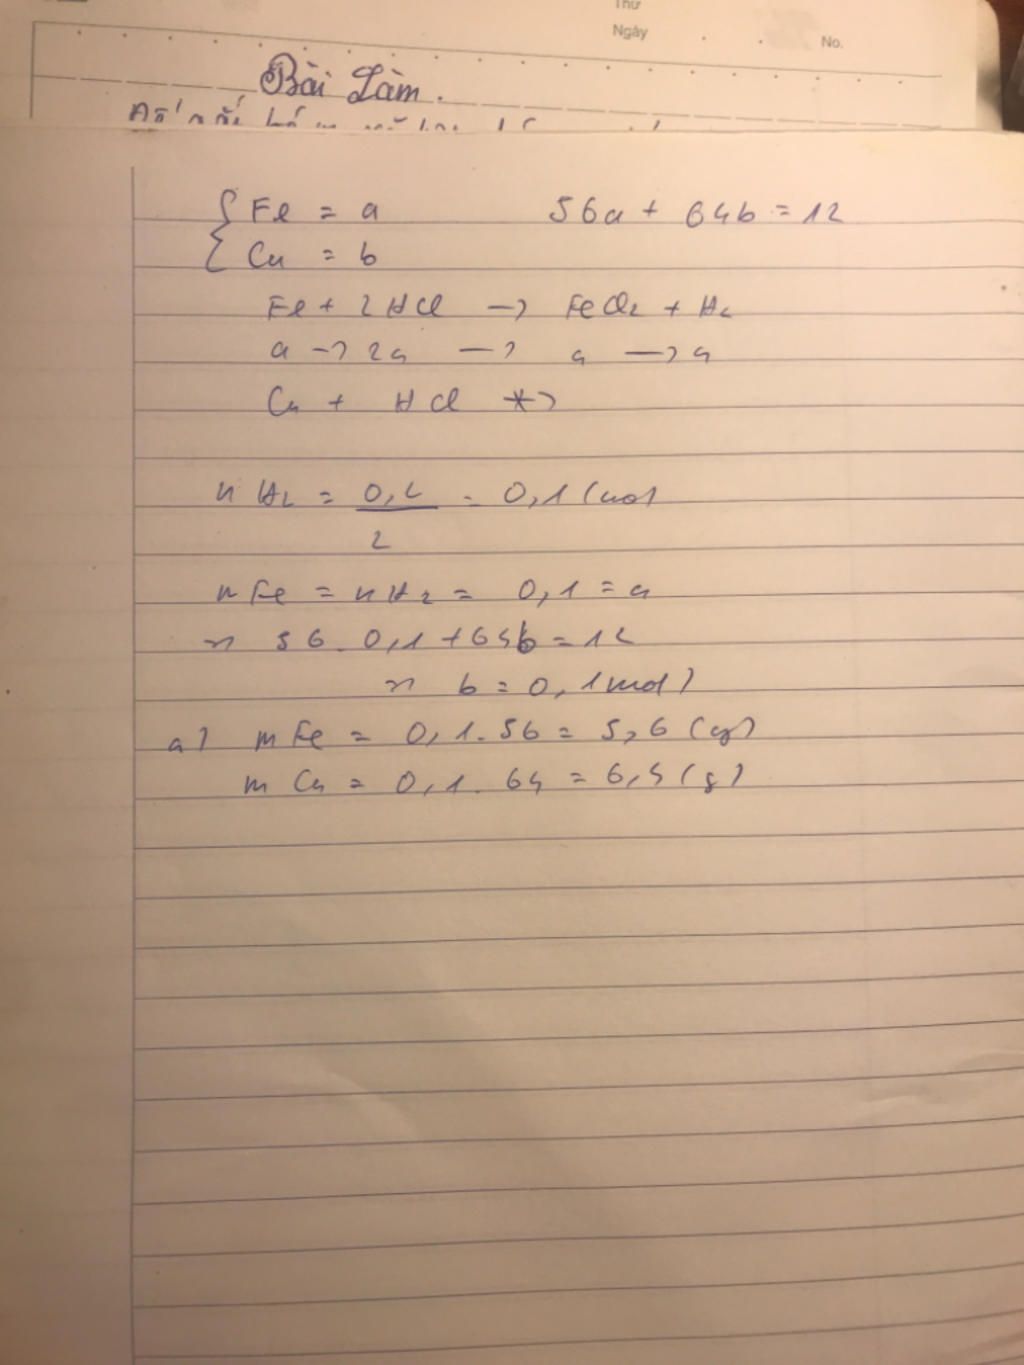 Thứ
Ngày
No.
Bài Làm.
{ Fe = a 56a + 64b = 12
Cu = b
Fe + 2HCl → FeCl2 + H2
a → 2a → a → a
Cu + HCl *→
nH2 = 0,2 / 2 = 0,1 (mol)
nFe = nH2 = 0,1 = a
=> 56.0,1 + 64b = 12
=> b = 0,1 mol)
a) mFe = 0,1.56 = 5,6 (g)
mCu = 0,1.64 = 6,4 (g)